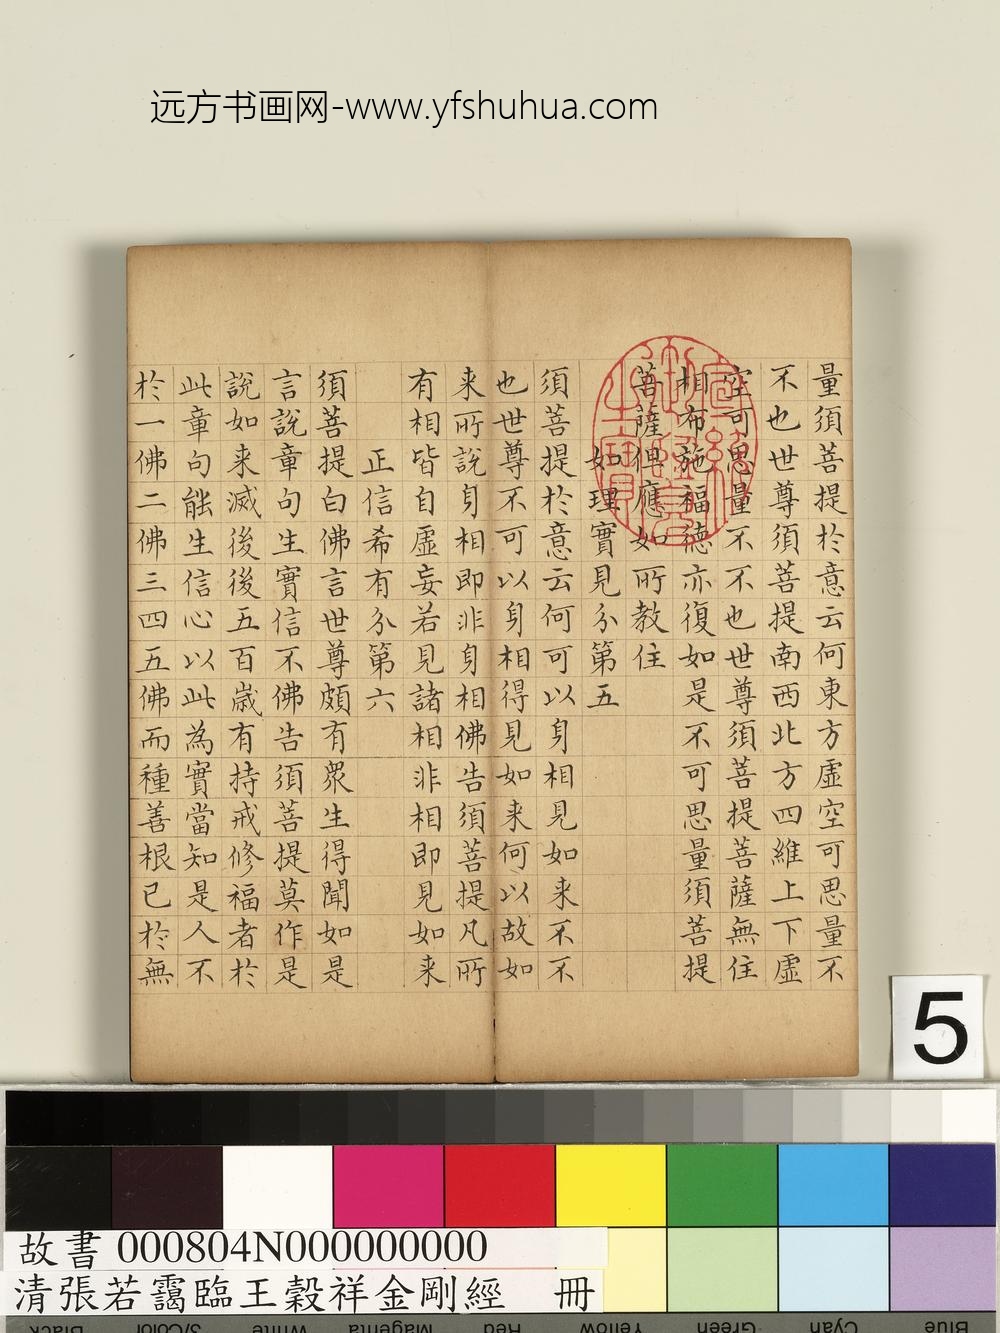 远方书画网-www.yfshuhua.com
量須菩提於意云何東方虛空可思量不
不也世尊須菩提南西北方四維上下虛
空可思量不不也世尊須菩提菩薩無住
相布施福德亦復如是不可思量須菩提
菩薩但應如所教住
如理實見分第五
須菩提於意云何可以身相見如来不不
也世尊不可以身相得見如来何以故如
来所說身相即非身相佛告須菩提凡所
有相皆自虛妄若見諸相非相即見如来
正信希有分第六
須菩提白佛言世尊頗有眾生得聞如是
言說章句生實信不佛告須菩提莫作是
說如来滅後後五百歲有持戒修福者於
此章句能生信心以此為實當知是人不
於一佛二佛三四五佛而種善根已於無
5
故書 000804N000000000
清張若靄臨王穀祥金剛經 冊
Black
3/Color
White
Magenta
Red
Yellow
Green
Cyan
Blue